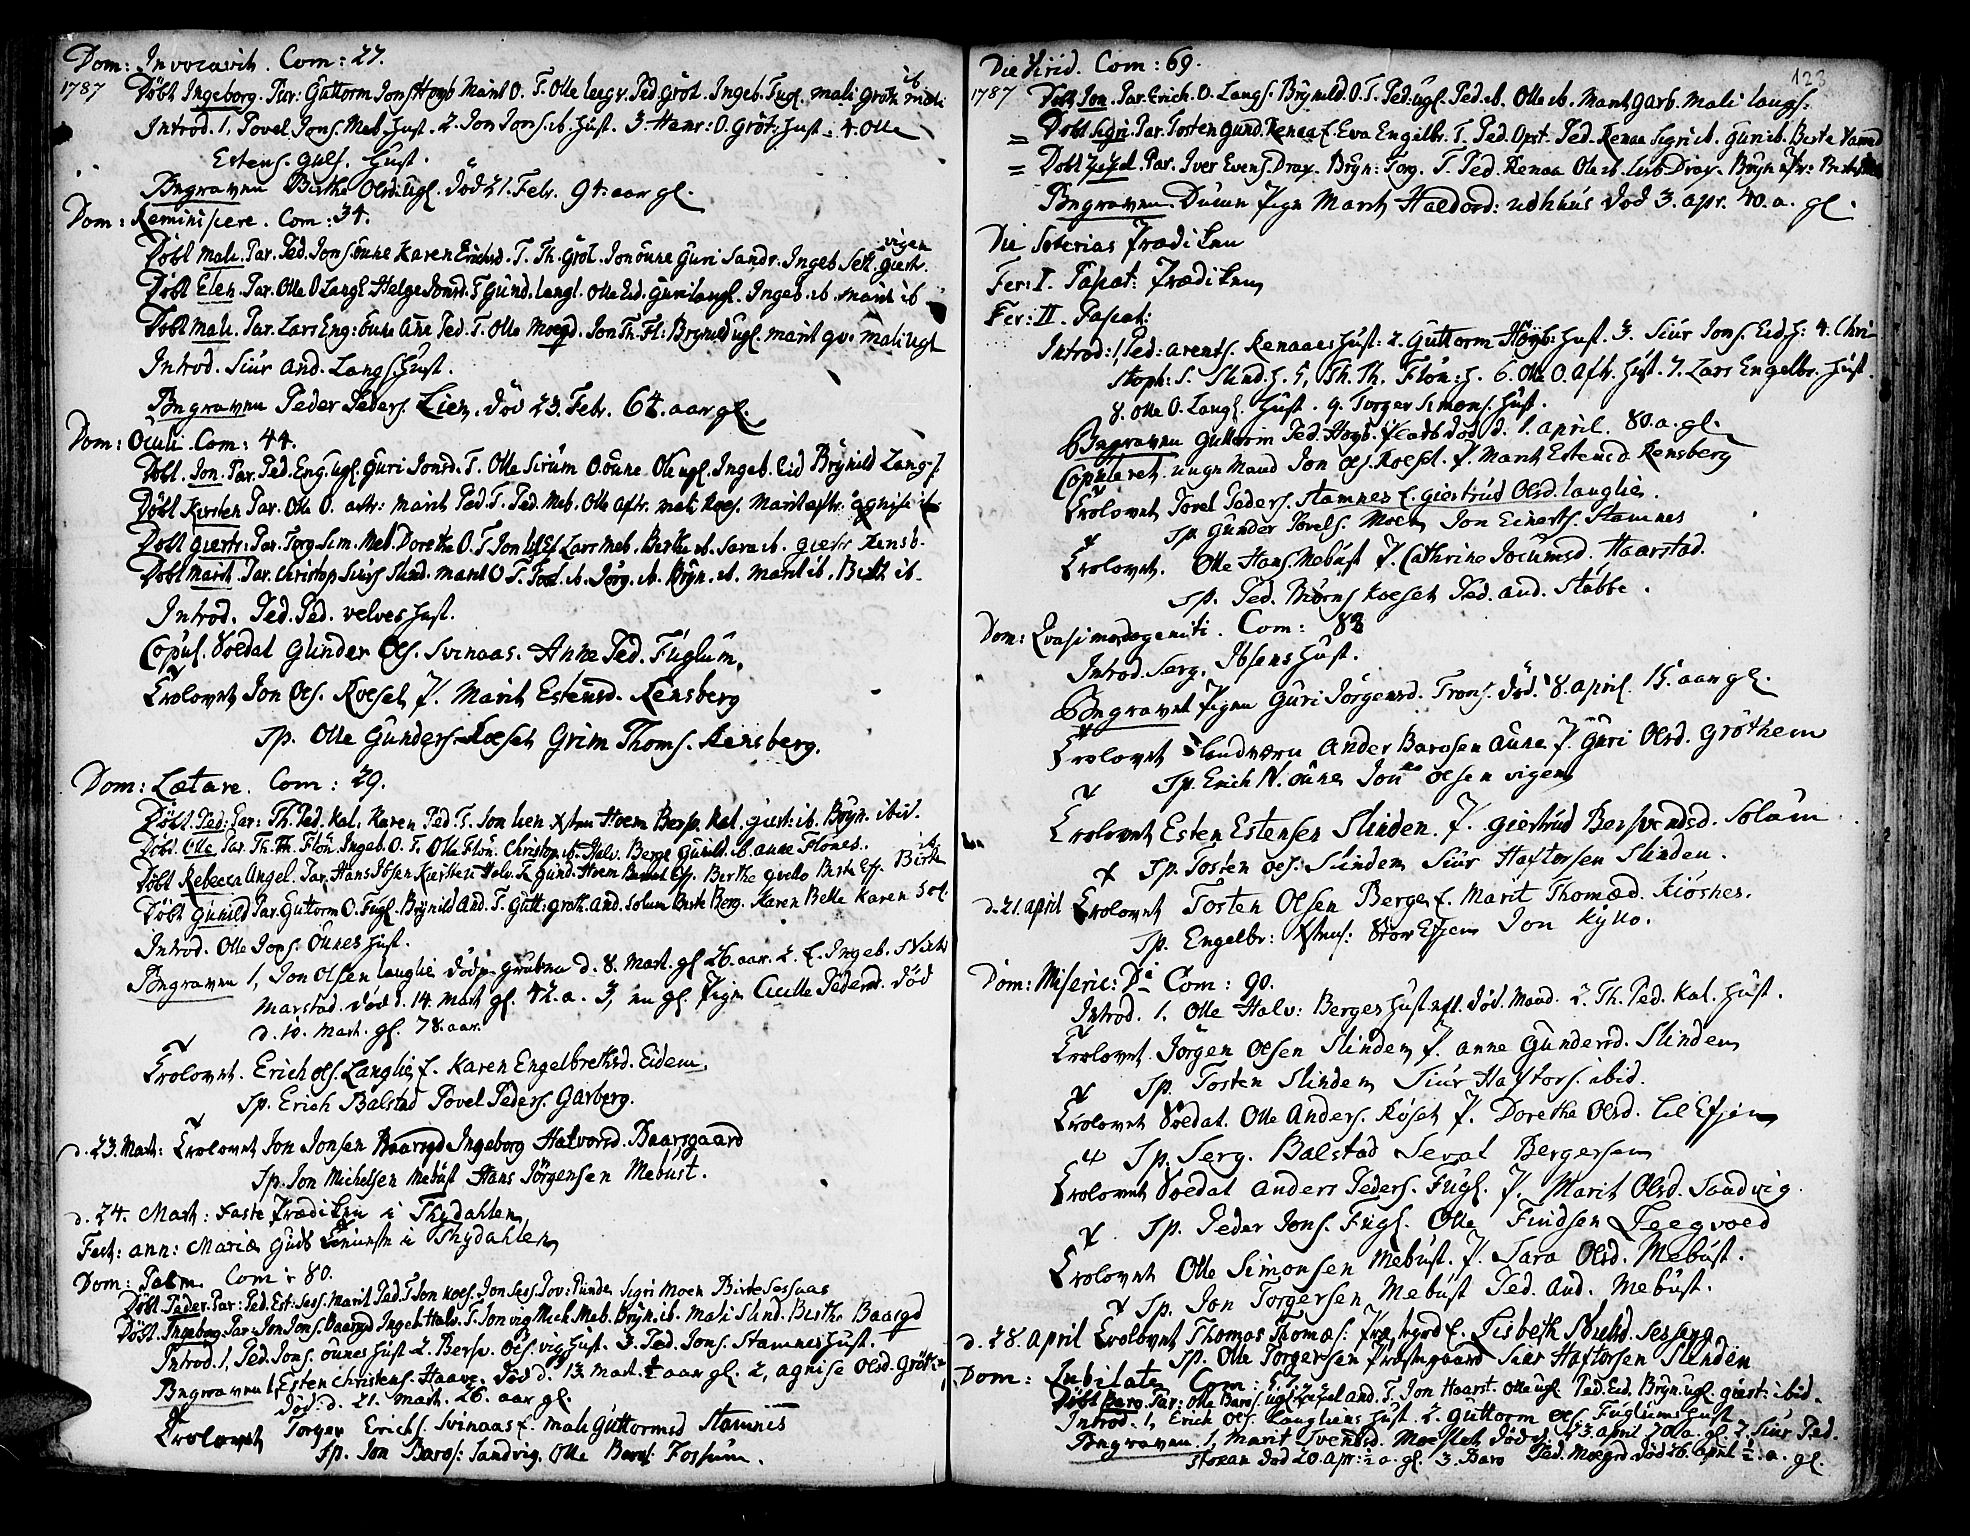 Dom: Invocavit. Com: 27.
1787 Döbt Ingeborg. Par: Guttorm Jons Høyb Marit O. T. Olle Ped Gröt. Ingeb. Fugl. Mali Gröth Mali ib
Introd. 1, Povel Jons. Meb. Hust. 2. Jon Jons. ib. Hust. 3. Hans: O. Gröt: Hust: 4. Olle
Estens. Gulf. Hust.
Begraven Birthe Olsd: Ugl. död 21. Febr. 94. aar gl.
Dom: Reminiscere. Com: 34.
Döbt Mali. Par. Ped. Jons. Öune Karen Erichsd. T. Th. Gröt. Jon Öune Guri Sandv. Ingeb Selb. Giertr. vigen
Döbt Elen. Par. Olle O Langl Helge Jonsd. T Gund. Langl. Olle Eid. Guri Langl. Ingeb. ib. Marit ib
Döbt Mali. Par. Lars Eng: Öune Ane Ped. T. Olle Moegd. Jon Th. Fl: Brynild Ugl. Marit qv. Mali Ugl
Introd. Siur And. Langs. Hust.
Begraven Peder Peders. Lien. död 23. Febr. 64. aar gl.
Dom: Oculi. Com: 44.
Döbt. Jon. Par. Ped. Eng. Ugl. Guri Jonsd. T. Olle Sirum O. Öune. Ole Ugl. Ingeb. Eid Brynild Lang
Döbt Kirsten Par. Olle O. Aftr: Marit Ped T. Ped. Meb. Olle Aftr. Mali Koes. Marit Aftr. Agnise ib
Döbt Giertr: Par. Torg. Sim. Meb. Dorethe O. T Jon Lars Meb. Berthe ib. Sara ib. Giertr Rensb.
Döbt Marit. Par. Christop Siurs Slind. Marit O T. ib. Jörg. ib. Bryn. ib. Marit ib. Birth ib.
Introd. Ped. Ped. Velves Hust.
Copul. Soldat Gunder Ols. Svinaas. Anne Ped. Fuglum.
Trolovet Jon Ols. Koeset P. Marit Estensd. Rensberg
Sp. Olle Gunders. Koeset Grim Thoms. Rensberg.
Dom: Lætare. Com: 29.
Döbt. Ped: Par: Th. Ped. Kal. Karen Ped T. Jon Lien Hoem Kal. Giert: ib. Bryn. ibid.
Döbt. Olle Par. Th. Th. Flön Ingeb. O. T. Olle Flön. Christop. ib. Halv. Berge Gunild ib. Anne Flönes.
Döbt Rebecca Angel. Par. Hans Ibsen Kirsten Halv. T. Gund. Hoem Berthe qvello Berthe Eff. Birth ib
Döbt Gunild Par. Guttorm O. Fugl. Brynild And. T. Gutt: Gröth And. Solum Berthe Berg. Karen Bell Karen Sol.
Introd. Olle Jons. Öunes Hust.
Begraven 1, Jon Olsen Langlie död d. 8. Mart. gl 26. aar. 2. E. Ingeb.
Marstad. död d. 14. Mart gl. 42. a. 3, en gl. Pige Cicille Pedersd. död
d. 10. Mart. gl. 78. aar.
Trolovet. Erich Ols. Langlie E. Karen Engelbrethsd. Eidem.
Sp. Erich Balstad Povel Peders. Garberg.
d. 23. Mart: Trolovet Jon Jonsen Baarsgd Ingeborg Halvorsd. Baarsgaard
Sp. Jon Michelsen Mebust Hans Jörgensen Mebust.
d. 24. Mart: Faste Prædiken i Thydahlen
Fest: ann: Mariæ Guds Tieniste i Thydahlen
Dom: Palm. Com: 80.
Döbt Peder. Par: Ped. Est: Sess. Marit Ped. T Jon Koes. Jon Sess. Sigri Moen Birte Sessaas
Döbt. Ingeborg. Par: Jon Jons. Baarsgd Ingeb Halv. T. Jon vig Mich Meb. Bryn ib. Mali Slind. Berthe Baarsgd
Introd. 1, Ped. Jons. Öunes Hust 2. Bersv. Ols. vig Hust. 3. Ped. Jons. Stamnes Hust.
Begraven 1, Esten Christens. Haave. död d. 13. Mart. ½ aar gl. 2, Agnise Olsd. Gröt
död. d. 21. Mart. 26. aar gl.
Trolovet Torger Erichs. Svinaas E. Mali Guttormsd Stamnes
Sp. Jon Baros: Sandvig. Olle Baros: Fossum.
123
Die Virid. Com: 69.
1787 Döbt Jon. Par. Erich. O. Langs. Brynild. O. T. Ped: Ugl. Ped. ib. Olle ib. Marit Garb. Mali Langs:
= Döbt Sigri. Par. Tosten Gund. Renaa E. Eva Engelbr. T. Ped. Opst. Ped. Renaa Sigri ib. Guri ib. Berte
= Döbt Zezel. Par. Iver Evens. Drax. Bryn: Torg. T. Ped. Renaa Ole ib. Lisb Drax. Bryn
Begraven. Pige Marit Haldord: Udhuus död 3. Apr. 40. a. gl.
Die Soterias Prædiken
Fer: I. Pascat: Prædiken
Fer: II. Pascat:
Introd: 1, Ped: Arents. Renaaes Hust: 2. Guttorm Höyb: Hust. 3. Siur Jons. Eid H: 4. Chri-
stoph: S. Slind. H. 5, Th. Th. Flön: H. 6. Olle O. Aftr. Hust. 7. Lars Engelbr. Hust.
8. Olle O. Langs. Hust. 9. Torger Simons. Hust.
Begraven Guttorm Ped. Höyb. död d. 1. April. 80. a. gl.
Copuleret. unge Mand Jon Ols. Koeset. P. Marit Estensd Rensberg
Trolovet Povel Peders. Stamnes E. Giertrud Olsd. Langlie.
Sp. Gunder Povels. Moen Jon Einerts. Stamnes
Trolovet. Olle Hans. Mebust P. Cathrine Jocumsd. Haarstad.
Sp. Ped. Koeset Ped. And. Stabbe.
Dom: Qvasimodogeniti. Com: 83
Introd. Serg. Ibsens Hust.
Begravet Pigen Guri Jörgensd. död. 8. April. 15. aar gl.
Trolovet Landværn Ander Barosen Aune P. Guri Olsd. Gröthem
Sp. Erich N. Öune Jon Olsen vigen
Trolovet Esten Estensen Slinden. P. Giertrud Bersvendsd. Solum
Sp. Tosten Ols. Slinden Siur Haftorsen Slinden.
d. 21. April Trolovet Tosten Olsen Berge E. Marit Thomæd. Kiösnes.
Sp. Engelbr: Stor Evjen Jon Kyllo.
Dom: Miseric: Di Com: 90.
Introd. 1. Olle Halv: Berges Hust. eft. död. Mand. 2. Th. Ped. Kal. Hust.
Trolovet. Jörgen Olsen Slinden P. Anne Gundersd. Slinden
Sp. Tosten Slinden Siur Haftors. ibid.
Trolovet Soldat. Olle Anders. Köset P. Dorethe Olsd. Lil Efjen
Sp. Serg. Balstad Sevat Bergersen
Trolovet Soldat Anders Peders. Fugl. P. Marit Olsd. Sandvig.
Sp. Peder Jons. Fugl. Olle Findsen Leegvold
Trolovet Olle Simonsen Mebust. P. Sara Olsd. Mebust.
Sp. Jon Torgersen Mebust Ped. And. Mebust.
d. 28. April Trolovet Thomas Thomæs: E. Lisbeth Sesseng
Sp. Olle Torgersen Præstegaard Siur Haftorsen Slinden
Dom: Jubilate Com: 57.
Döbt Baro. Par: Olle Baros: Ugl: Zezel And. T. Jon Haarst. Olle Ugl Ped. Eid. Bryn. Ugl. Giert: ibid.
Introd. 1, Erich Ols Langliens Hust. 2. Guttorm Ols. Fuglums Hust
Begraven. 1, Marit Svendsd. Moeslet död d. 23. April 70. a. gl. 2. Siur Ped.
Stokan död 20. Apr: ½ a. gl. 3. Baro Ped. Moegrd död 26. April ½. a. gl.